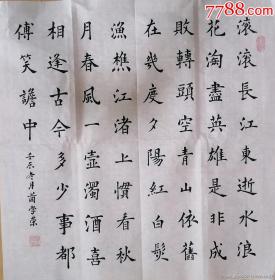 7788.com
滚滚長江東逝水浪
花淘盡英雄是非成
敗轉頭空青山依舊
在幾度夕陽紅白髮
漁樵江渚上慣看秋
月春風一壺濁酒喜
相逢古今多少事都
傅笑譫中
壬辰